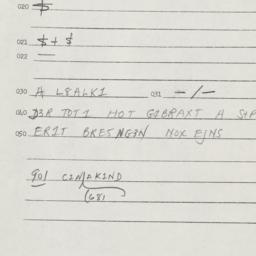 020 $
021 $ + $
022 —
030 A L8ALKI 031 — / —
040 D3R TOTI HOT GIBRAXT A STP
050 ER1T BRESNG3N NOX EJNS
901 CINAKIND
(681